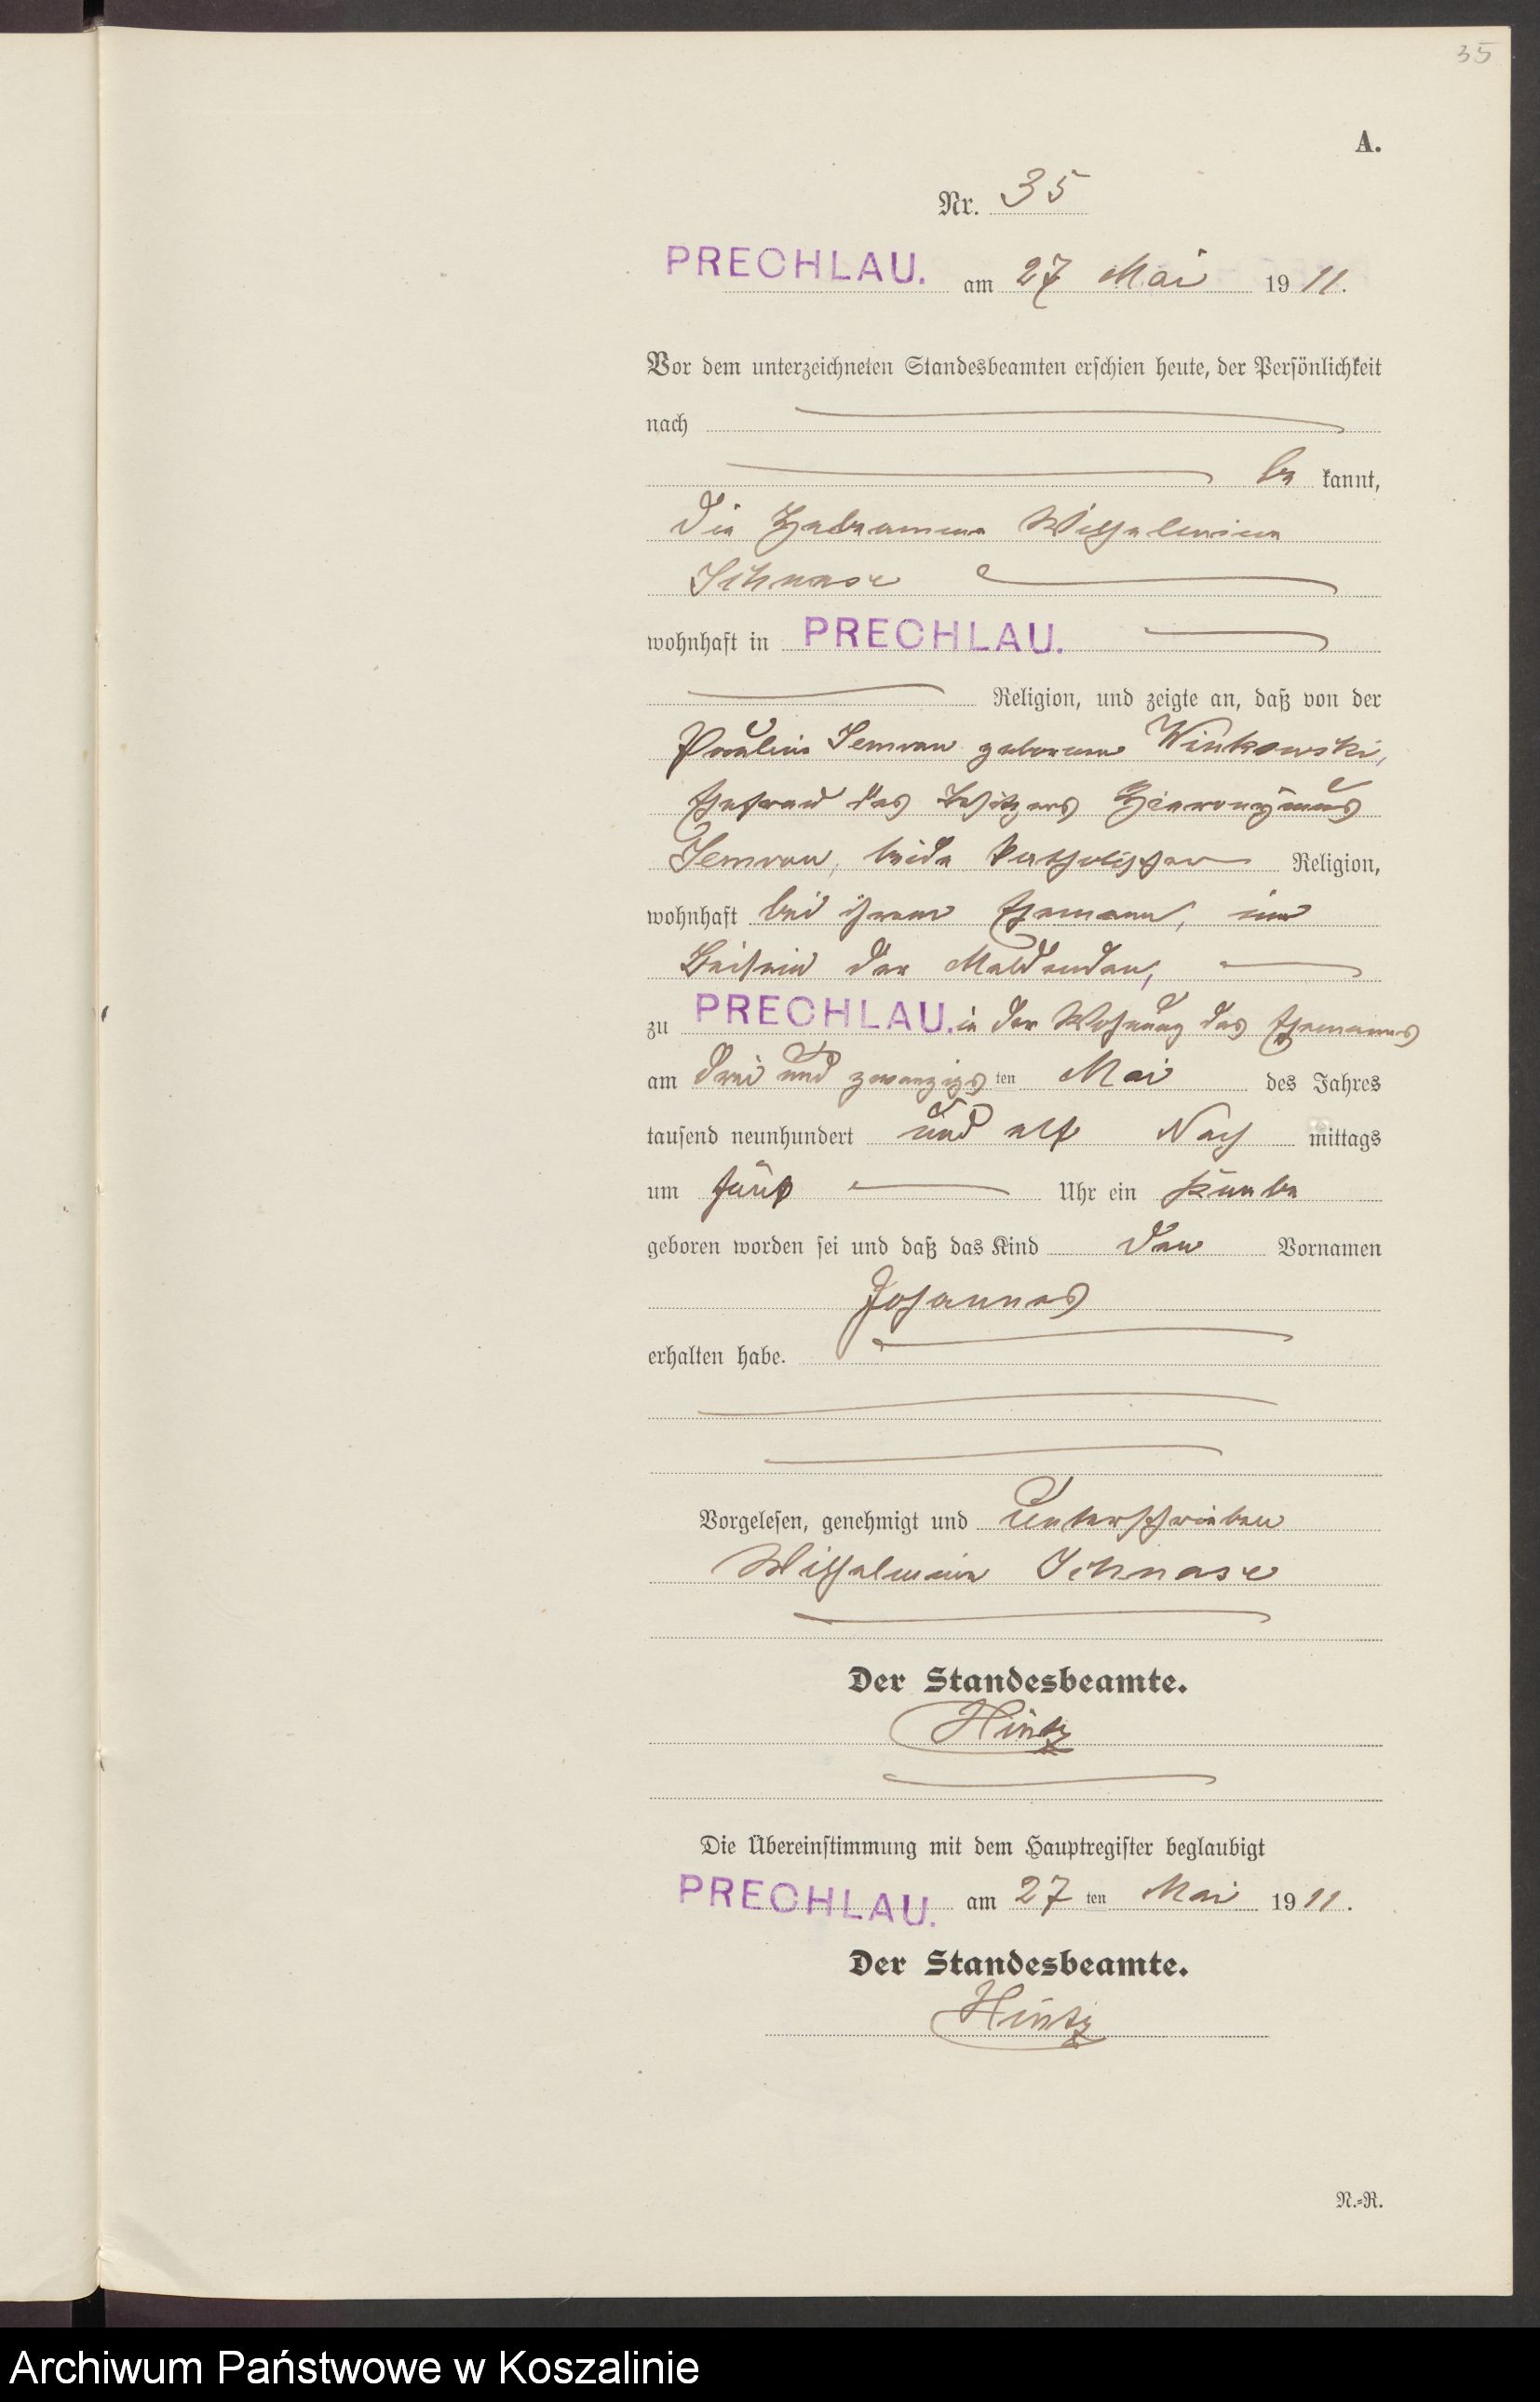 35
A.
Nr. 35
PRECHLAU. am 27 Mai 1911.
Vor dem unterzeichneten Standesbeamten erschien heute, der Persönlichkeit
nach
be kannt,
die Hebamme Wilhelmine
Schnase
wohnhaft in PRECHLAU.
Religion, und zeigte an, daß von der
Pauline Semrau geborene Winkowski,
Ehefrau des Besitzers Hieronymus
Semrau, beide katholischer Religion,
wohnhaft bei ihrem Ehemann, im
Beisein der Meldenden,
zu PRECHLAU. in der Wohnung des Ehemannes
am drei und zwanzigs ten Mai des Jahres
tausend neunhundert und elf Nach mittags
um fünf Uhr ein Knabe
geboren worden sei und daß das Kind den Vornamen
Johannes
erhalten habe.
Vorgelesen, genehmigt und unterschrieben
Wilhelmine Schnase
Der Standesbeamte.
Hintz
Die Übereinstimmung mit dem Hauptregister beglaubigt
PRECHLAU. am 27 ten Mai 1911.
Der Standesbeamte.
Hintz
N.=R.
Archiwum Państwowe w Koszalinie